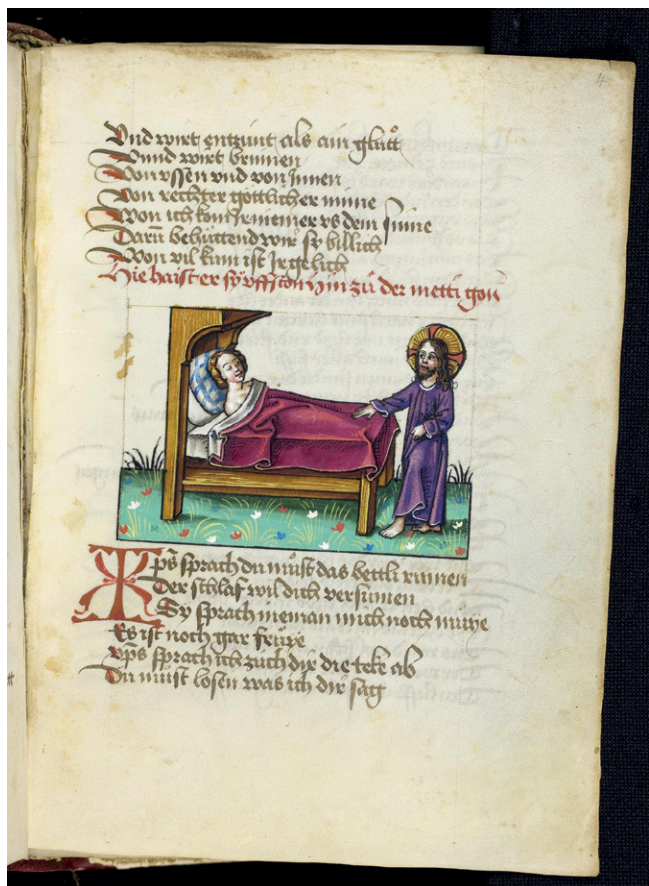 4
Vnd wirt entzünt als ain gluͦt
Vnnd wirt brinnen
Von vssen vnd von Innen
Von rechter göttlicher minne
Won ich kom niemer vs dem sinne
Darū behüttend wir sy billich
Won vil kinn ist Ir gelich
Hie haist er sy vff ston hin zuͦ der metti gon
Xp̄s sprach du muͦst das bettli rumen
Der schlaf wil dich versumen
Sy sprach nieman mich noch müye
Es ist noch gar früye
xp̄s sprach ich züch dir die teke ab
Du muͦst losen was ich dir sag